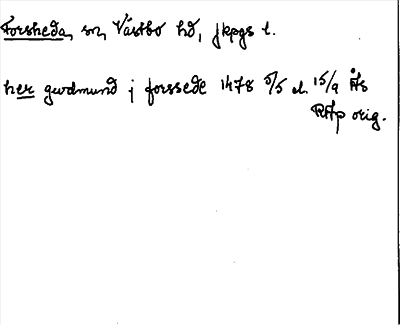 Forsheda, sn, Västbo hd, Jkpgs l.
her gudmund j forssede 1478 5/5 el. 15/9 Ås
RAp orig.